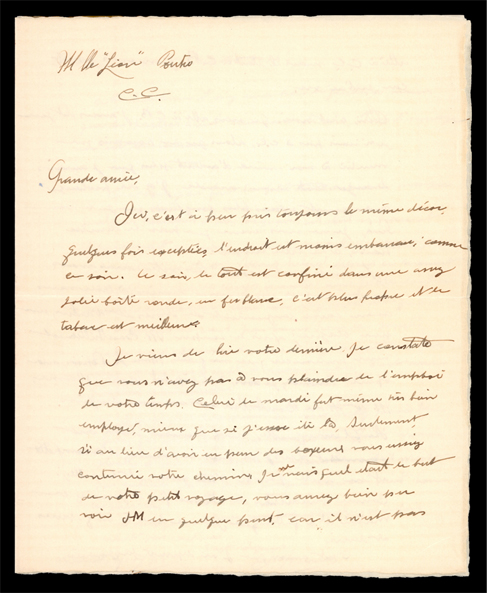 Mlle "Léon" Pontio
C.C.
Grande amie,
Ici, c'est à peu près toujours le même décor,
quelques fois exceptées l'endroit est moins embarrassé, comme
ce soir. Ce soir, le tout est confiné dans une assez
jolie boîte ronde, en fer blanc, c'est plus propre et le
tabac est meilleur.
Je viens de lire votre dernière. Je constate
que vous n'avez pas à vous plaindre de l'emploi
de votre temps. Celui de mardi fut même très bien
employé, mieux que si j'eusse été là. Seulement
si au lieu d'avoir eu peur des boxeurs vous aviez
continué votre chemin, je ne sais quel était le but
de votre petit voyage, vous auriez bien pu
voir JM en quelque part, car il n'est pas